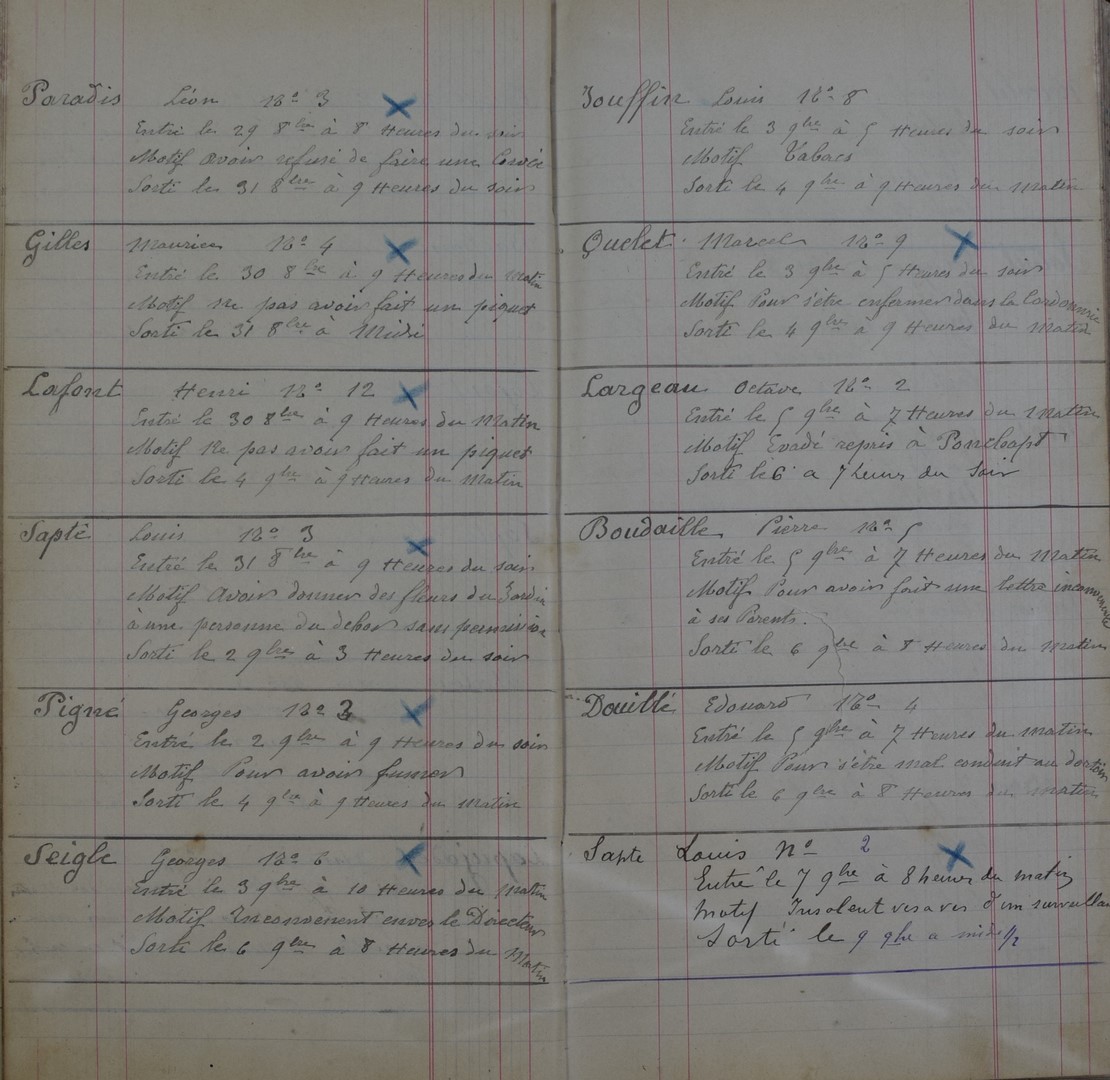 Paradis Léon N° 3
Entré le 29 8bre à 8 Heures du soir
Motif avoir refusé de faire une Corvée
Sorti le 31 8bre à 9 Heures du soir
Gilles Maurice N° 4
Entré le 30 8bre à 9 Heures du Matin
Motif Ne pas avoir fait un piquet
Sorti le 31 8bre à Midi
Lafont Henri N° 12
Entré le 30 8bre à 9 Heures du Matin
Motif Ne pas avoir fait un piquet
Sorti le 4 9bre à 9 Heures du Matin
Sapté Louis N° 3
Entré le 31 8bre à 9 Heures du soir
Motif Avoir donner des fleurs du Jardin
à une personne du dehor sans permission
Sorti le 2 9bre à 3 Heures du soir
Pigné Georges N° 2
Entré le 2 9bre à 9 Heures du soir
Motif Pour avoir fumer
Sorti le 4 9bre à 9 Heures du Matin
Seigle Georges N° 6
Entré le 3 9bre à 10 Heures du Matin
Motif Inconvenent enver le Directeur
Sorti le 6 9bre à 8 Heures du Matin
Jouffin Louis N° 8
Entré le 3 9bre à 5 Heures du soir
Motif Tabacs
Sorti le 4 9bre à 9 Heures du Matin
Quelet Marcel N° 9
Entré le 3 9bre à 5 Heures du soir
Motif Pour s'être enfermer dans la Cordonnerie
Sorti le 4 9bre à 9 Heures du Matin
Largeau Octave N° 2
Entré le 5 9bre à 7 Heures du Matin
Motif Evadé repris à
Sorti le 6 a 7 heures du Soir
Boudaille Pierre N° 5
Entré le 5 9bre à 7 Heures du Matin
Motif Pour avoir fait une lettre inconvenente
à ses Parents.
Sorti le 6 9bre à 8 Heures du Matin
Douillé Edouard N° 4
Entré le 5 9bre à 7 Heures du Matin
Motif Pour s'être mal conduit au dortoir
Sorti le 6 9bre à 8 Heures du Matin
Sapte Louis N° 2
Entré le 7 9bre à 8 heures du matin
Motif Insolent vis a vis d'un surveillan
Sorti le 9 9bre a midi 1/2